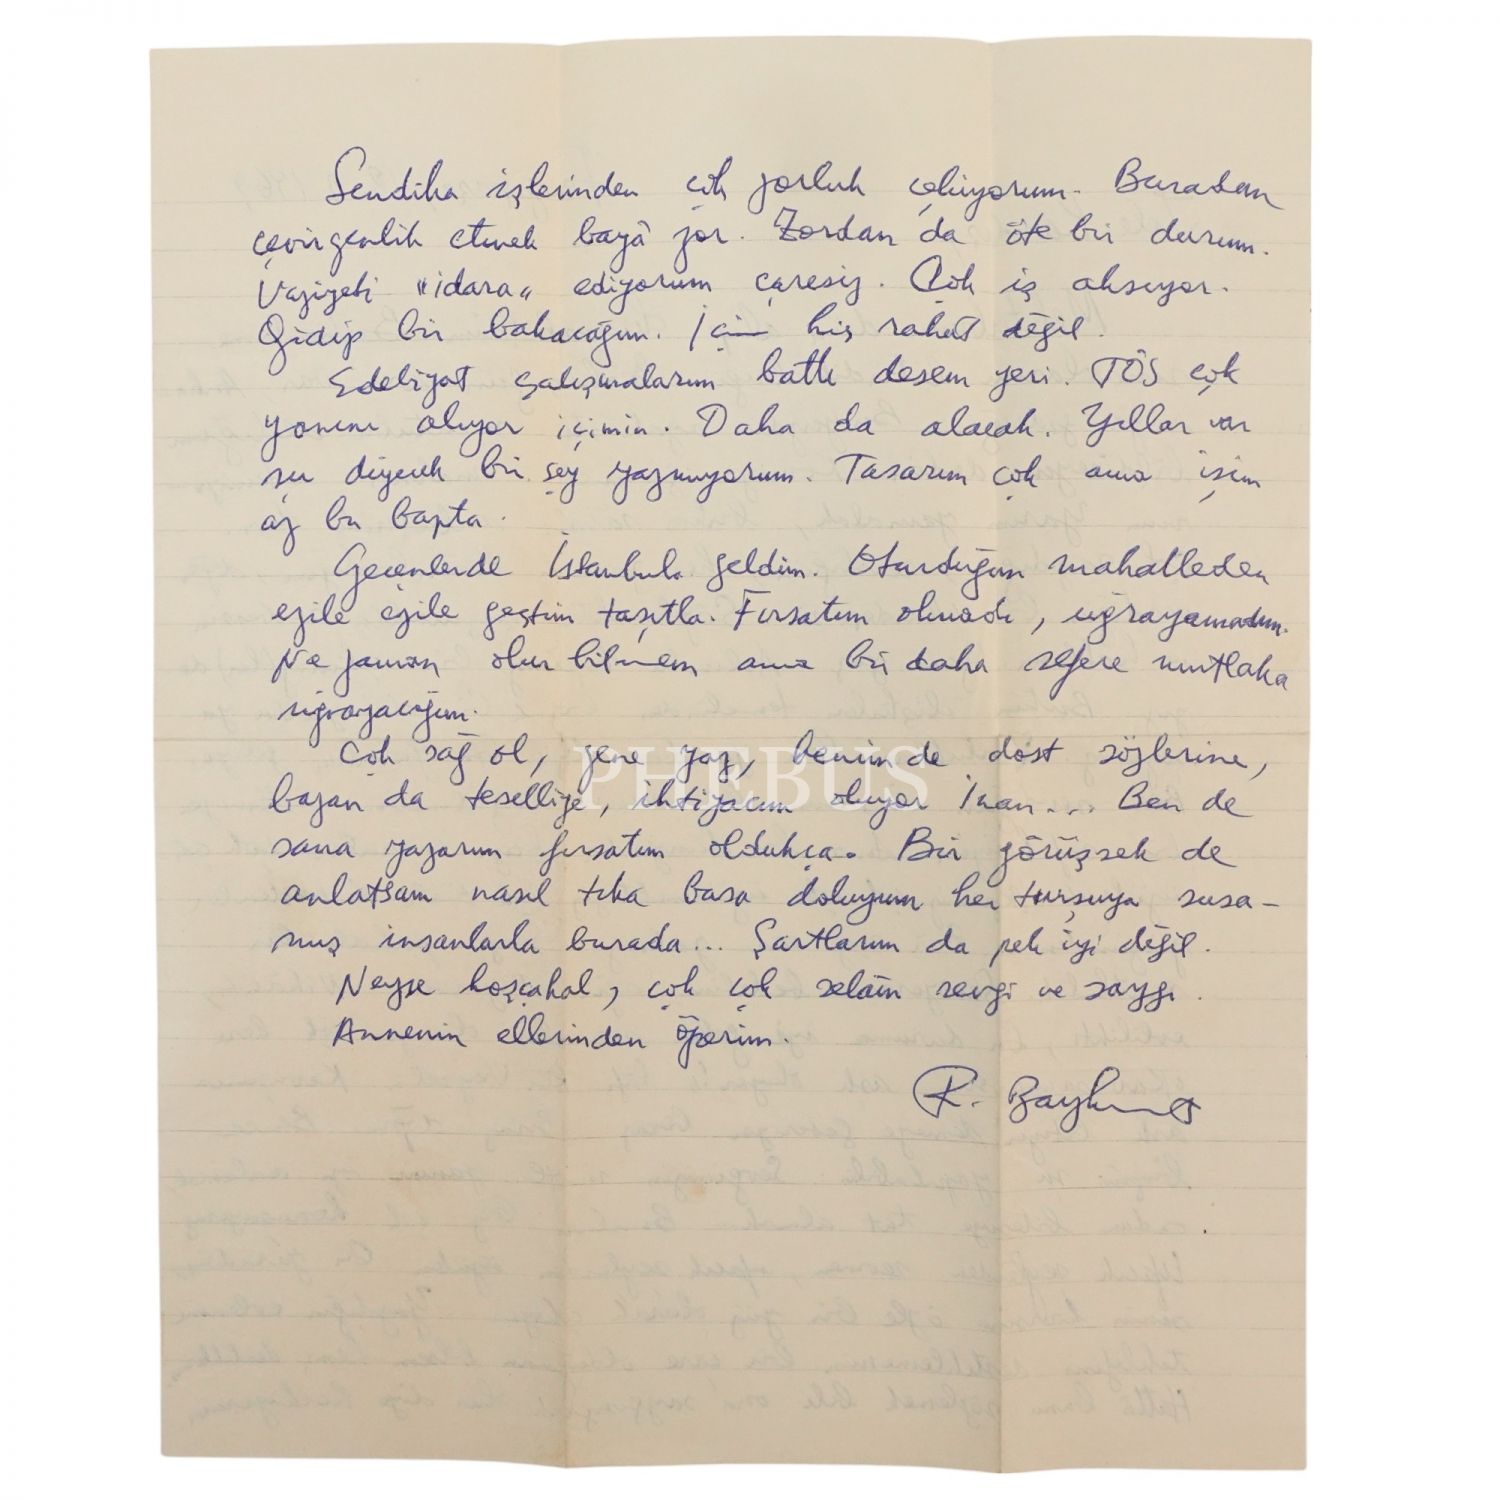 Sendika işlerinden çok zorluk çekiyorum. Buradan
çevirgenlik etmek bayâ zor. Zordan da öte bir durum.
Vaziyeti "idara" ediyorum çaresiz. Çok iş aksıyor.
Gidip bir bakacağım. İçim hiç rahat değil.
Edebiyat çalışmalarım battı desem yeri. TÖS çok
yanını alıyor içimin. Daha da alacak. Yıllar var
şu diyecek bir şey yazmıyorum. Tasarım çok ama işim
az bu bapta.
Geçenlerde İstanbula geldim. Oturduğun mahalleden
ezile ezile geçtim taşıtla. Fırsatım olmadı, uğrayamadım.
Ne zaman olur bilmem ama bir daha sefere mutlaka
uğrayacağım.
Çok sağ ol, gene yaz, benim de dost sözlerine,
bazan da teselliye, ihtiyacım oluyor inan... Ben de
sana yazarım fırsatım oldukça. Bir görüşsek de
anlatsam nasıl tıka basa doluyum her turşuya susa-
mış insanlarla burada... Şartlarım da pek iyi değil.
Neyse hoşçakal, çok çok selâm sevgi ve saygı.
Annenin ellerinden öperim.
F. Baykurt
PHEBUS